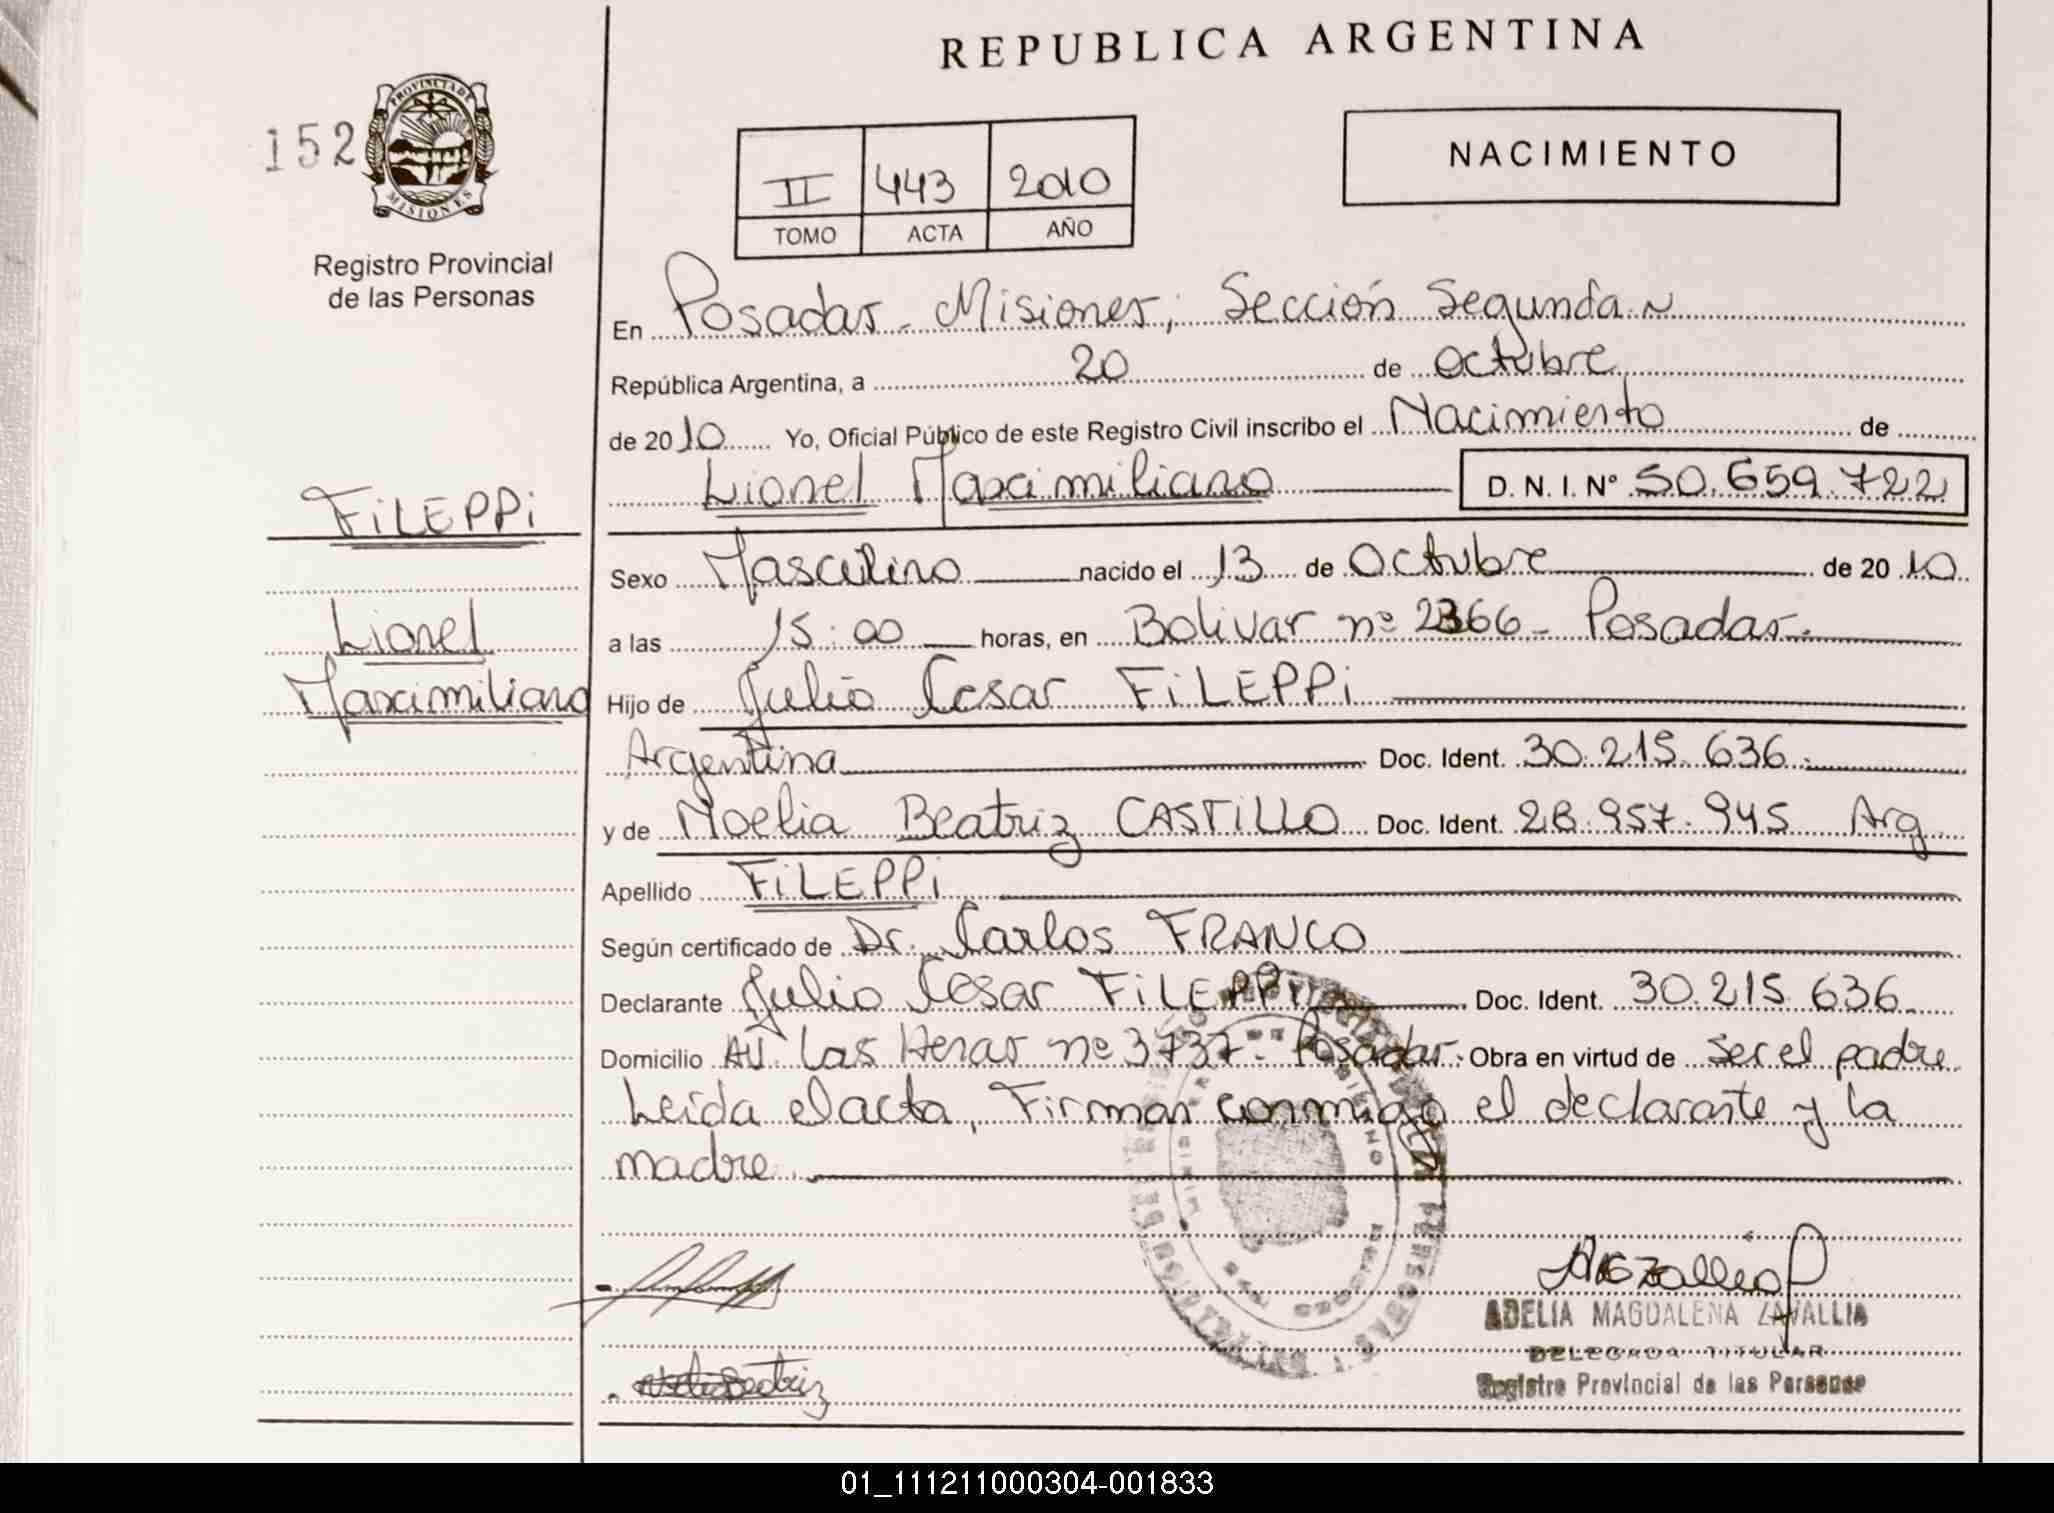 REPUBLICA ARGENTINA
152
PROVINCIA DE
MISIONES
Registro Provincial
de las Personas
II 443 2010
TOMO ACTA AÑO
NACIMIENTO
En Posadas - Misiones, Sección Segunda
República Argentina, a 20 de octubre
de 2010 Yo, Oficial Público de este Registro Civil inscribo el Nacimiento de
Lionel Maximiliano D. N. I. Nº 50.659.722
FiLEPPi
Lionel
Maximiliano
Sexo Masculino nacido el 13 de Octubre de 2010
a las 15:00 horas, en Bolivar nº 2366 - Posadas.
Hijo de Julio Cesar FiLEPPi
Argentina Doc. Ident. 30.215.636.
y de Noelia Beatriz CASTiLLO Doc. Ident. 28.957.945 Arg.
Apellido FiLEPPi
Según certificado de Dr. Carlos FRANCO
Declarante Julio Cesar FiLEPPi Doc. Ident. 30.215.636
Domicilio AV. Las Heras nº 3737 - Posadas. Obra en virtud de ser el padre
Leida el acta, Firman conmigo el declarante y la
madre.
Beatriz
ADELIA MAGDALENA ZAVALLIA
DELEGADA TITULAR
Registro Provincial de las Personas
01_111211000304-001833